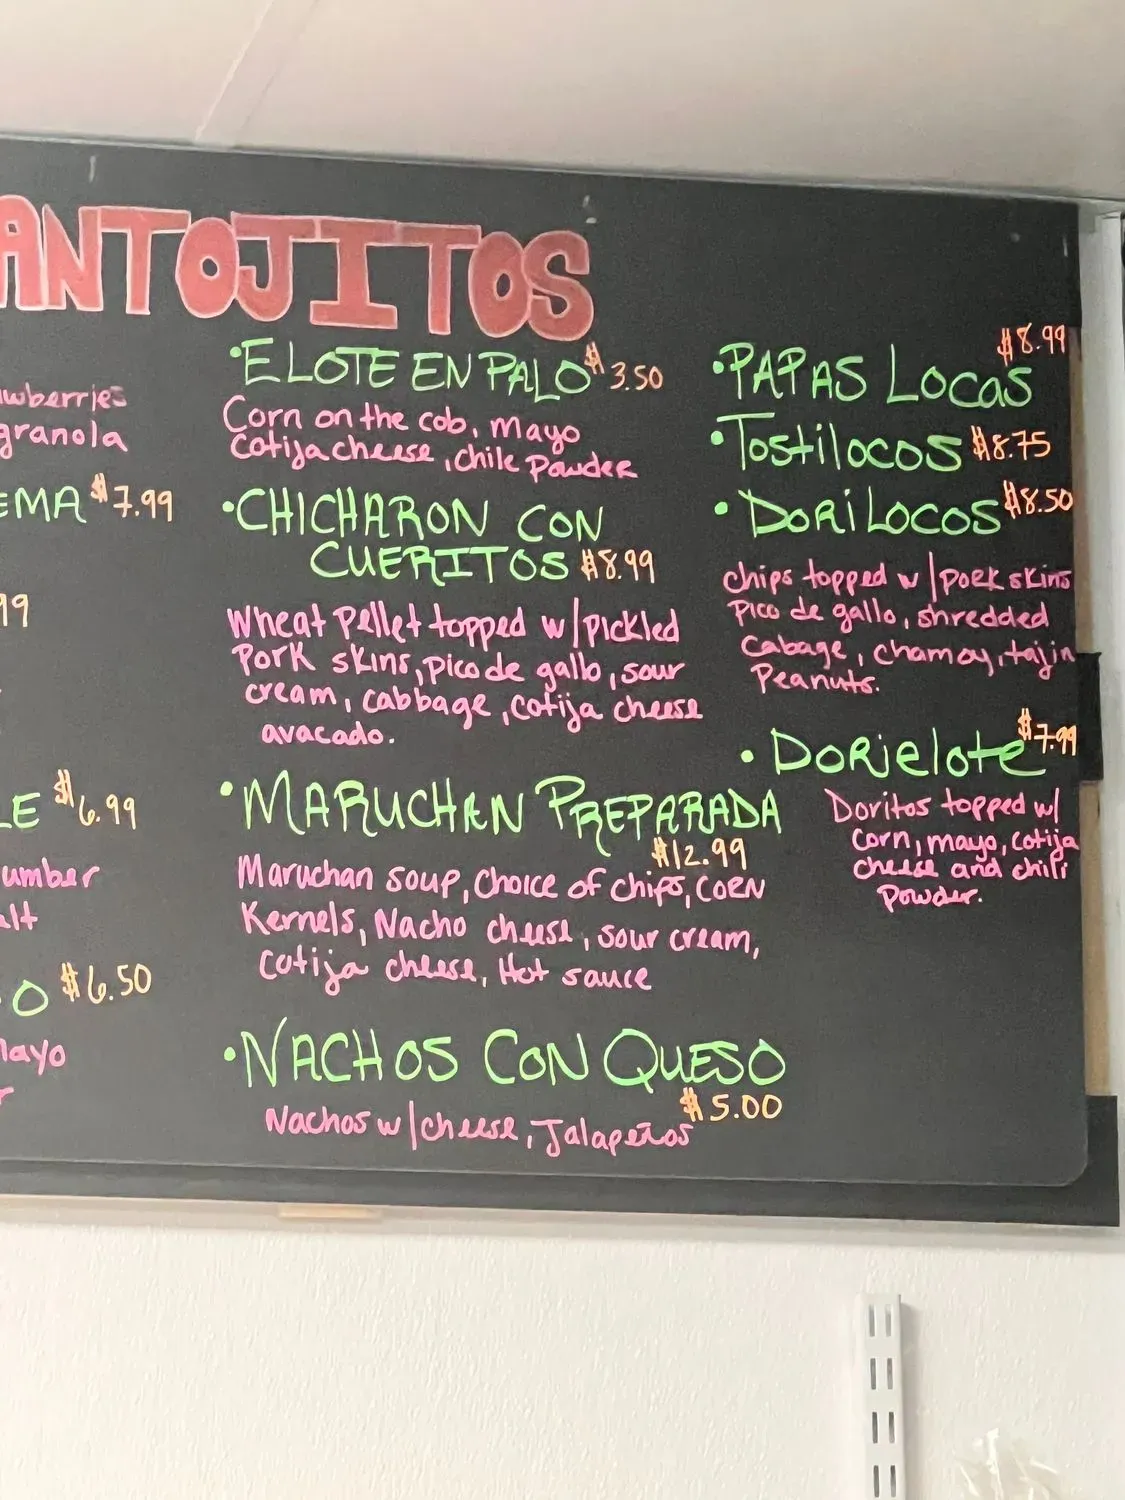 ANTOJITOS
granola
$7.99
$6.99
$6.50
•ELOTE EN PALO $3.50
Corn on the cob, mayo
Cotija cheese, Chile Powder
•CHICHARON CON
CUERITOS $8.99
Wheat Pellet topped w/pickled
Pork skins, pico de gallo, sour
cream, cabbage, cotija cheese
avacado.
•MARUCHAN PREPARADA
$12.99
Maruchan soup, Choice of chips, CORN
Kernels, Nacho cheese, sour cream,
Cotija cheese, Hot sauce
•NACHOS CON QUESO
$5.00
Nachos w/cheese, Jalapeños
$8.99
•PAPAS LOCAS
•Tostilocos $8.75
•DORILOCOS $8.50
chips topped w/pork skins
Pico de gallo, shredded
Cabage, chamoy, tajin
Peanuts.
•DORielote $7.99
Doritos topped w/
Corn, mayo, cotija
cheese and chili
Powder.